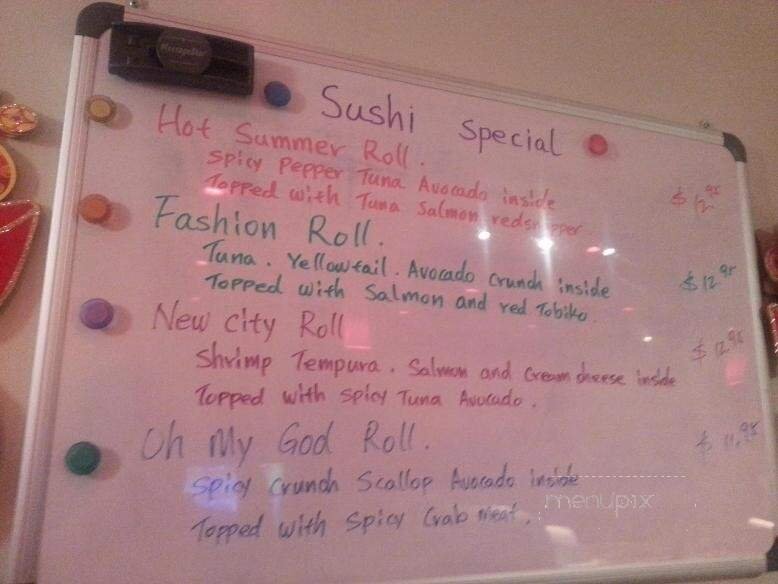 Sushi Special
Hot Summer Roll.
Spicy Pepper Tuna Avocado inside
Topped with Tuna Salmon redsnapper.
$12.95
Fashion Roll.
Tuna. Yellowtail. Avocado Crunch inside
Topped with Salmon and red Tobiko.
$12.95
New City Roll
Shrimp Tempura. Salmon and Cream cheese inside
Topped with Spicy Tuna Avocado.
$12.95
Oh My God Roll.
Spicy Crunch Scallop Avocado inside
Topped with Spicy Crab meat.
$11.95
menupix